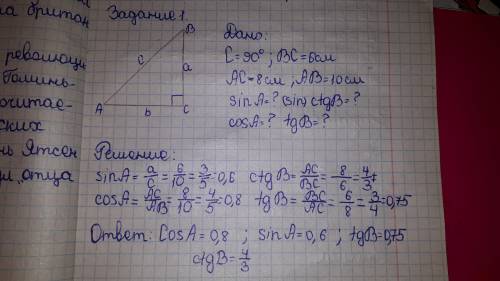 на британ
Задание 1.
революци
Гоминь-
очитае-
ских
нь Ятсен
отца
B
c
a
A
b
C
Дано:
C=90°; BC=6см
AC=8см, AB=10см
sinA=? ctgB=?
cosA=? tgB=?
Решение:
sinA= a/c = 6/10 = 3/5 =0,6 ctgB= AC/BC = 8/6 = 4/3
cosA= AC/AB = 8/10 = 4/5 =0,8 tgB= BC/AC = 6/8 = 3/4 =0,75
Ответ: CosA=0,8 ; sinA=0,6 ; tgB=0,75
ctgB= 4/3